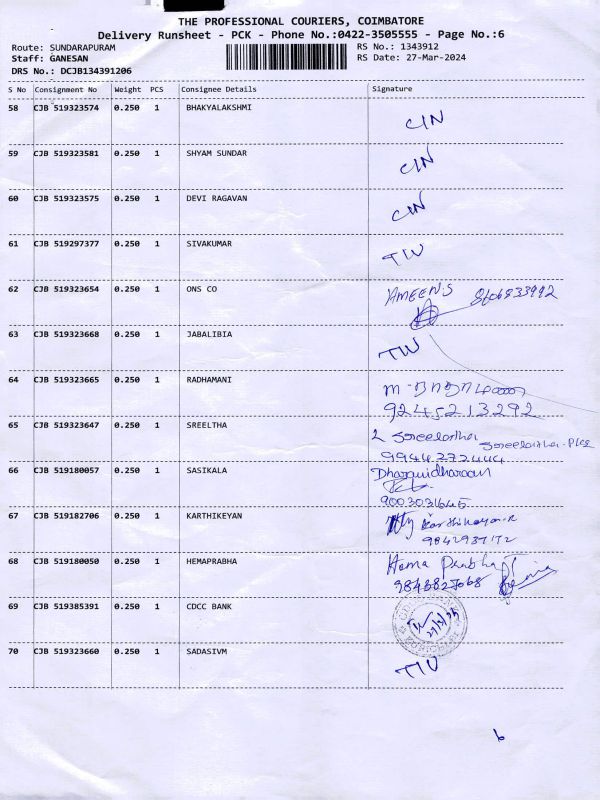 THE PROFESSIONAL COURIERS, COIMBATORE
Delivery Runsheet - PCK - Phone No.:0422-3505555 - Page No.:6
Route: SUNDARAPURAM RS No.: 1343912
Staff: GANESAN RS Date: 27-Mar-2024
DRS No.: DCJB134391206
S No Consignment No Weight PCS Consignee Details Signature
58 CJB 519323574 0.250 1 BHAKYALAKSHMI CIN
59 CJB 519323581 0.250 1 SHYAM SUNDAR CIN
60 CJB 519323575 0.250 1 DEVI RAGAVAN CIN
61 CJB 519297377 0.250 1 SIVAKUMAR TIV
62 CJB 519323654 0.250 1 ONS CO AMEEN.S
63 CJB 519323668 0.250 1 JABALIBIA TIV
64 CJB 519323665 0.250 1 RADHAMANI
9245213292
65 CJB 519323647 0.250 1 SREELTHA
9944272444
66 CJB 519180057 0.250 1 SASIKALA
9003031645
67 CJB 519182706 0.250 1 KARTHIKEYAN
68 CJB 519180050 0.250 1 HEMAPRABHA Hema Prabha
69 CJB 519385391 0.250 1 CDCC BANK
70 CJB 519323660 0.250 1 SADASIVM TIV